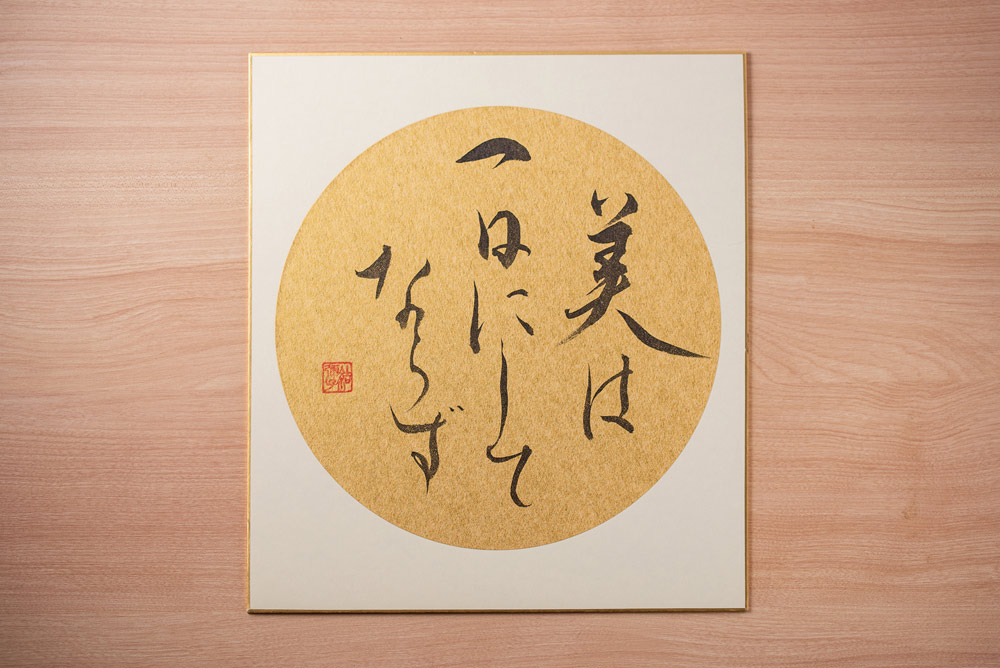 美は
一日にして
ならず